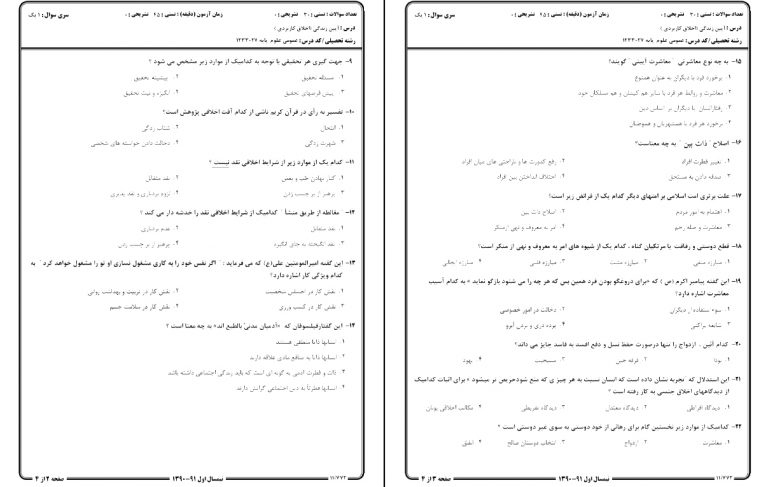 تعداد سوالات : تستی : ۳۰ تشریحی : ۰ زمان آزمون (دقیقه) : تستی : ۴۵ تشریحی : ۰ سری سوال : ۱ یک
درس : آیین زندگی (اخلاق کاربردی)
رشته تحصیلی/کد درس : عمومی علوم پایه ۱۲۳۳۰۲۷
۹- جهت گیری هر تحقیقی با توجه به کدامیک از موارد زیر مشخص می شود ؟
۱. مسئله تحقیق ۲. پیشینه تحقیق
۳. پیش فرضهای تحقیق ۴. انگیزه و نیت تحقیق
۱۰- تفسیر به رأی در قرآن کریم ناشی از کدام آفت اخلاقی پژوهش است؟
۱. انتحال ۲. شتاب زدگی
۳. شهرت زدگی ۴. دخالت دادن خواسته های شخصی
۱۱- کدام یک از موارد زیر از شرایط اخلاقی نقد نیست ؟
۱. کنار نهادن حب و بغض ۲. نقد متقابل
۳. پرهیز از بر چسب زدن ۴. لزوم بردباری و نقد پذیری
۱۲- "مغالطه از طریق منشأ" کدامیک از شرایط اخلاقی نقد را خدشه دار می کند ؟
۱. نقد متقابل ۲. عدم بردباری
۳. نقد انگیخته به جای انگیزه ۴. پرهیز از بر چسب زدن
۱۳- این گفته امیرالمومنین علی(ع) که می فرماید : "اگر نفس خود را به کاری مشغول نسازی او تو را مشغول خواهد کرد" به
کدام ویژگی کار اشاره دارد؟
۱. نقش کار در احساس شخصیت ۲. نقش کار در تربیت و بهداشت روانی
۳. نقش کار در کسب ورزی ۴. نقش کار در سلامت جسم
۱۴- این گفتارفیلسوفان که «آدمیان مدنیّ بالطبع اند» به چه معنا است ؟
۱. انسانها ذاتا منطقی هستند
۲. انسانها ذاتا به منافع مادی علاقه دارند
۳. ذات و فطرت آدمی به گونه ای است که باید زندگی اجتماعی داشته باشد
۴. انسانها فطرتاً به دین اجتماعی گرایش دارند
صفحه ۲ از ۴ نیمسال اول ۹۱-۱۳۹۰ ۱۱/۷۷۲
تعداد سوالات : تستی : ۳۰ تشریحی : ۰ زمان آزمون (دقیقه) : تستی : ۴۵ تشریحی : ۰ سری سوال : ۱ یک
درس : آیین زندگی (اخلاق کاربردی)
رشته تحصیلی/کد درس : عمومی علوم پایه ۱۲۳۳۰۲۷
۱۵- به چه نوع معاشرتی "معاشرت آیینی" گویند؟
۱. برخورد فرد با دیگران به عنوان همنوع
۲. معاشرت و روابط هر فرد با سایر هم کیشان و هم مسلکان خود
۳. رفتارانسان با دیگران بر اساس دین
۴. برخورد هر فرد با همشهریان و هموطنان
۱۶- اصلاح "ذات بین" به چه معناست؟
۱. تغییر فطرت افراد ۲. رفع کدورت ها و ناراحتی های میان افراد
۳. صدقه دادن به مستحق ۴. اختلاف انداختن بین افراد
۱۷- علت برتری امت اسلامی بر امتهای دیگر کدام یک از فرائض زیر است؟
۱. اهتمام به امور مردم ۲. اصلاح ذات بین
۳. معاشرت و صله رحم ۴. امر به معروف و نهی ازمنکر
۱۸- قطع دوستی و رفاقت با مرتکبان گناه ، کدام یک از شیوه های امر به معروف و نهی از منکر است؟
۱. مبارزه منفی ۲. مبارزه مثبت ۳. مبارزه قلبی ۴. مبارزه اجمالی
۱۹- این گفته پیامبر اکرم (ص) که «برای دروغگو بودن فرد همین بس که هر چه را می شنود بازگو نماید» به کدام آسیب
معاشرت اشاره دارد؟
۱. سوء استفاده از دیگران ۲. دخالت در امور خصوصی
۳. شایعه پراکنی ۴. پرده دری و بردن آبرو
۲۰- کدام آئین ، ازدواج را تنها درصورت حفظ نسل و دفع افسد به فاسد جایز می داند؟
۱. بودا ۲. فرقه جین ۳. مسیحیت ۴. یهود
۲۱- این استدلال که "تجربه نشان داده است که انسان نسبت به هر چیز ی که منع شودحریص تر میشود" برای اثبات کدامیک
از دیدگاههای اخلاق جنسی به کار رفته است ؟
۱. دیدگاه افراطی ۲. دیدگاه معتدل ۳. دیدگاه تفریطی ۴. مکاتب اخلاقی یونان
۲۲- کدامیک از موارد زیر نخستین گام برای رهائی از خود دوستی به سوی غیر دوستی است ؟
۱. معاشرت ۲. ازدواج ۳. انتخاب دوستان صالح ۴. انفاق
صفحه ۳ از ۴ نیمسال اول ۹۱-۱۳۹۰ ۱۱/۷۷۲